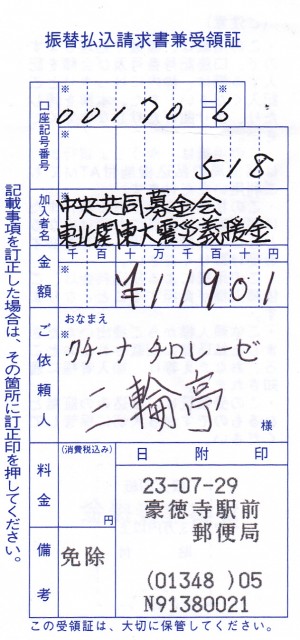 振替払込請求書兼受領証
口座記号番号
※
00170=6
※
518
加入者名
※
中央共同募金会
東北関東大震災義援金
金額
千 百 十 万 千 百 十 円
※
¥11901
ご依頼人
おなまえ
※
クチーナ チロレーゼ
三輪亭
様
料金
(消費税込み)
円
日 附 印
23-07-29
豪徳寺駅前
郵便局
(01348 )05
N91380021
備考
免除
記載事項を訂正した場合は、その箇所に訂正印を押してください。
この受領証は、大切に保管してください。